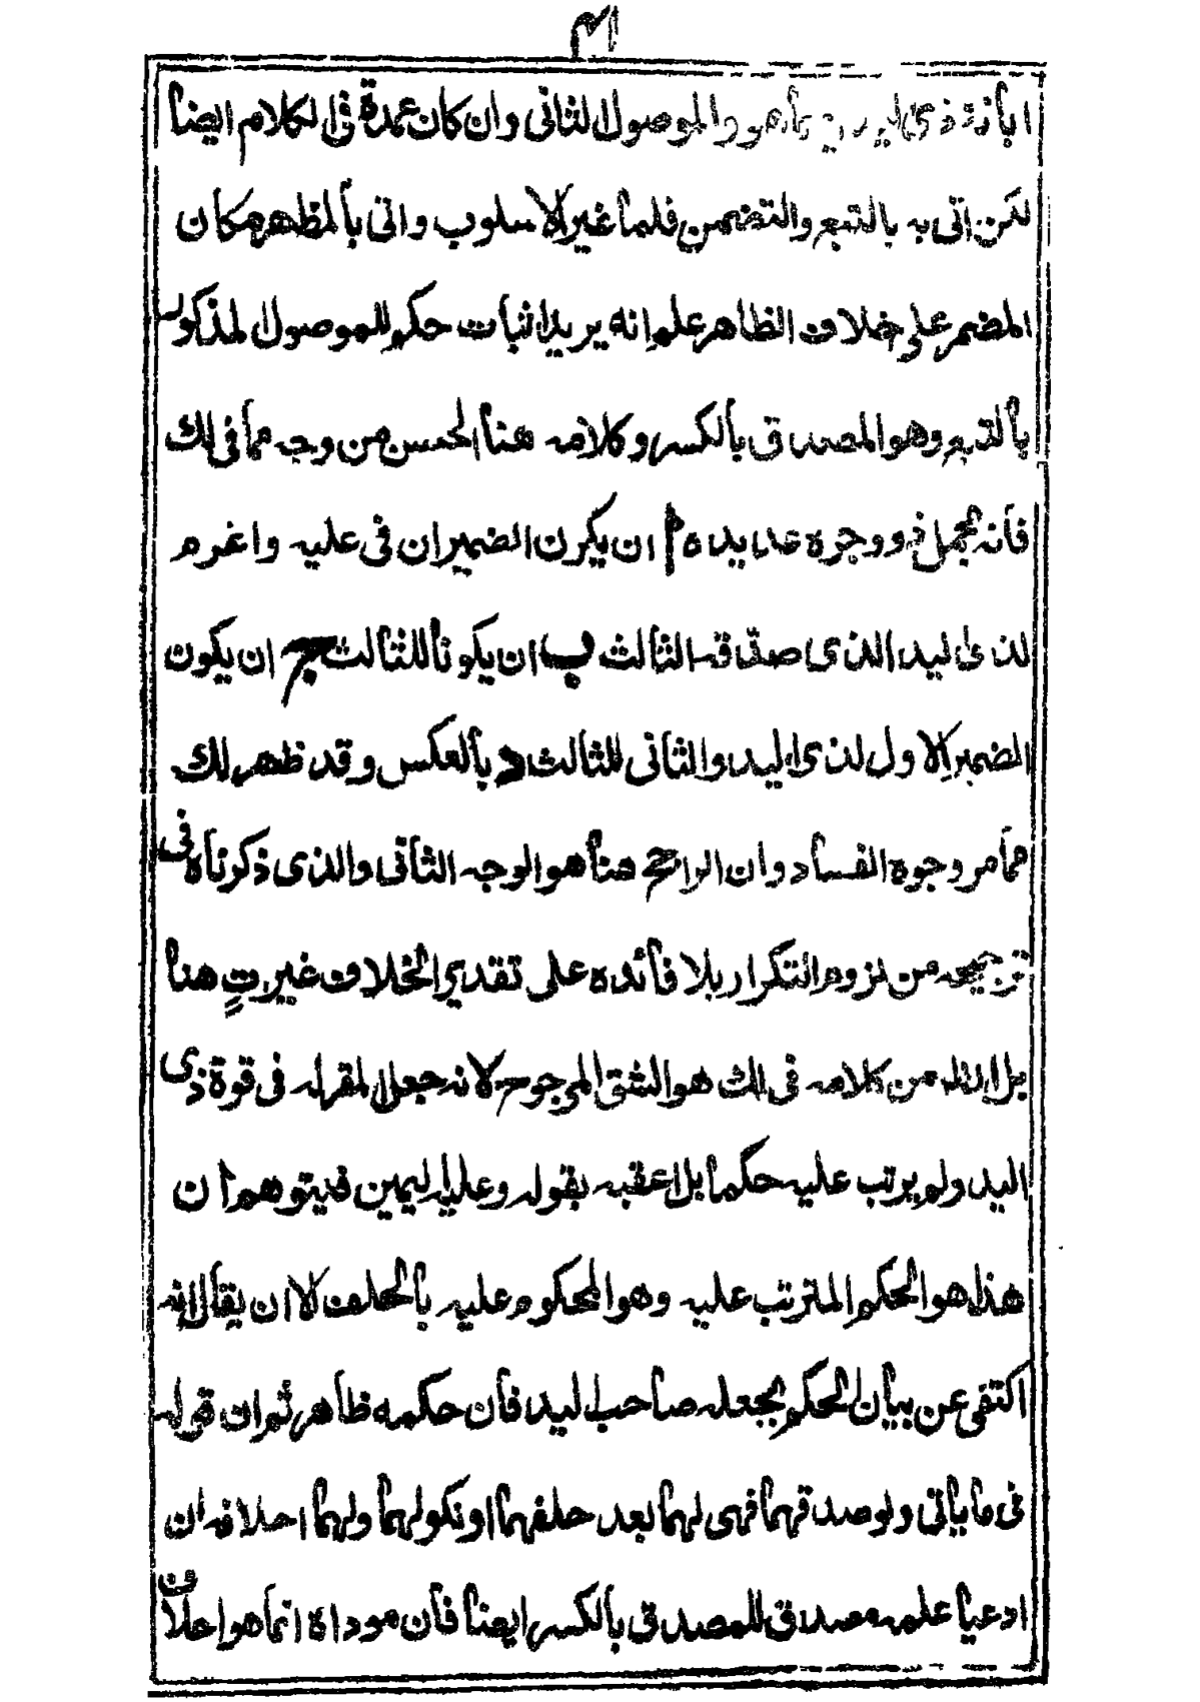 ٤١
ابانة ذى اليد هو الموصول الثانى وان كان عمدة فى الكلام ايضا
لكن اتى به بالتبع والتضمن فلما غير الاسلوب واتى بالمظهر مكان
المضمر على خلاف الظاهر علم انه يريد اثبات حكم للموصول المذكور
بالتبع وهو المصدق بالكسر وكلامه هنا احسن من وجه مما فى لك
فانه مجمل ذو وجوه عديدة ا ان يكون الضميران فى عليه واغرم
لذى اليد الذى صدقه الثالث ب ان يكونا للثالث ج ان يكون
الضمير الاول لذى اليد والثانى للثالث د بالعكس وقد ظهر لك
مما مر وجوه الفساد وان الراجح هنا هو الوجه الثانى والذى ذكرناه فى
ترجيحه من لزوم التكرار بلا فائده على تقدير الخلاف غير ات هنا
بل من كلامه فى لك هو الشق المرجوح لانه جعل المقر له فى قوة ذى
اليد ولم يرتب عليه حكما بل اعقبه بقوله وعليه اليمين فيتوهم ان
هذا هو الحكم المترتب عليه وهو المحكوم عليه بالحلف الا ان يقال انه
اكتفى عن بيان الحكم بجعله صاحب اليد فان حكمه ظاهر ثم ان قوله
فى ما ياتى ولو صدقهما فهى لهما بعد حلفهما او نكولهما ولهما احلافه ان
ادعيا علمه مصدق للمصدق بالكسر ايضا فان موداه انما هو احلاف